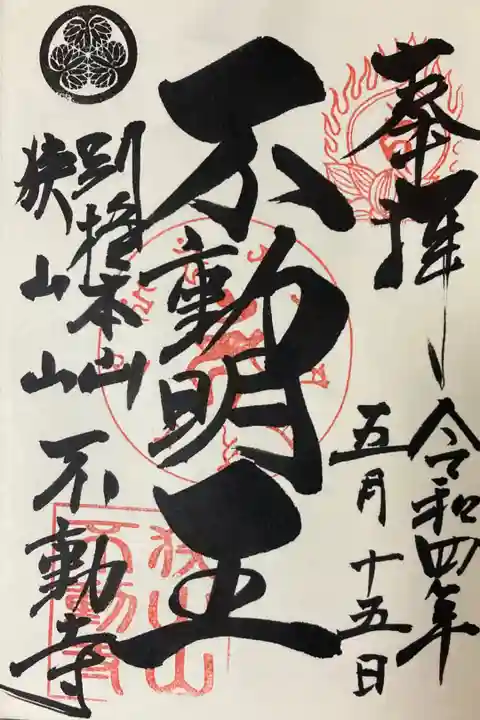 奉拝
令和四年
五月十五日
不動明王
別格本山
狭山山不動寺
狭山山
不動寺